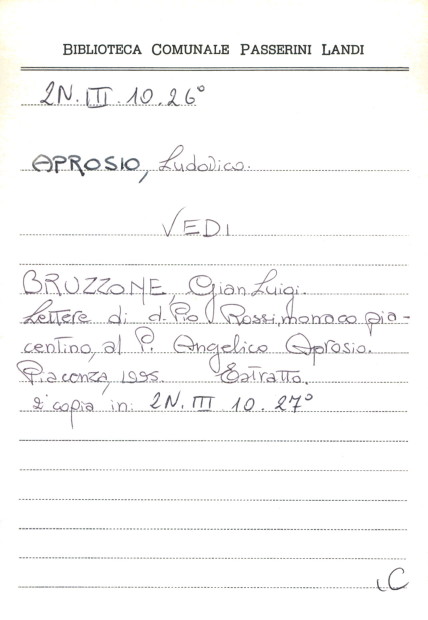 BIBLIOTECA COMUNALE PASSERINI LANDI
2N. III. 10. 26°
APROSIO, Ludovico.
VEDI
BRUZZONE, Gian Luigi.
Lettere di d. Pio Rossi, monaco pia-
centino, al P. Angelico Aprosio.
Piacenza, 1995. Estratto.
2ª copia in: 2N. III 10. 27°
C